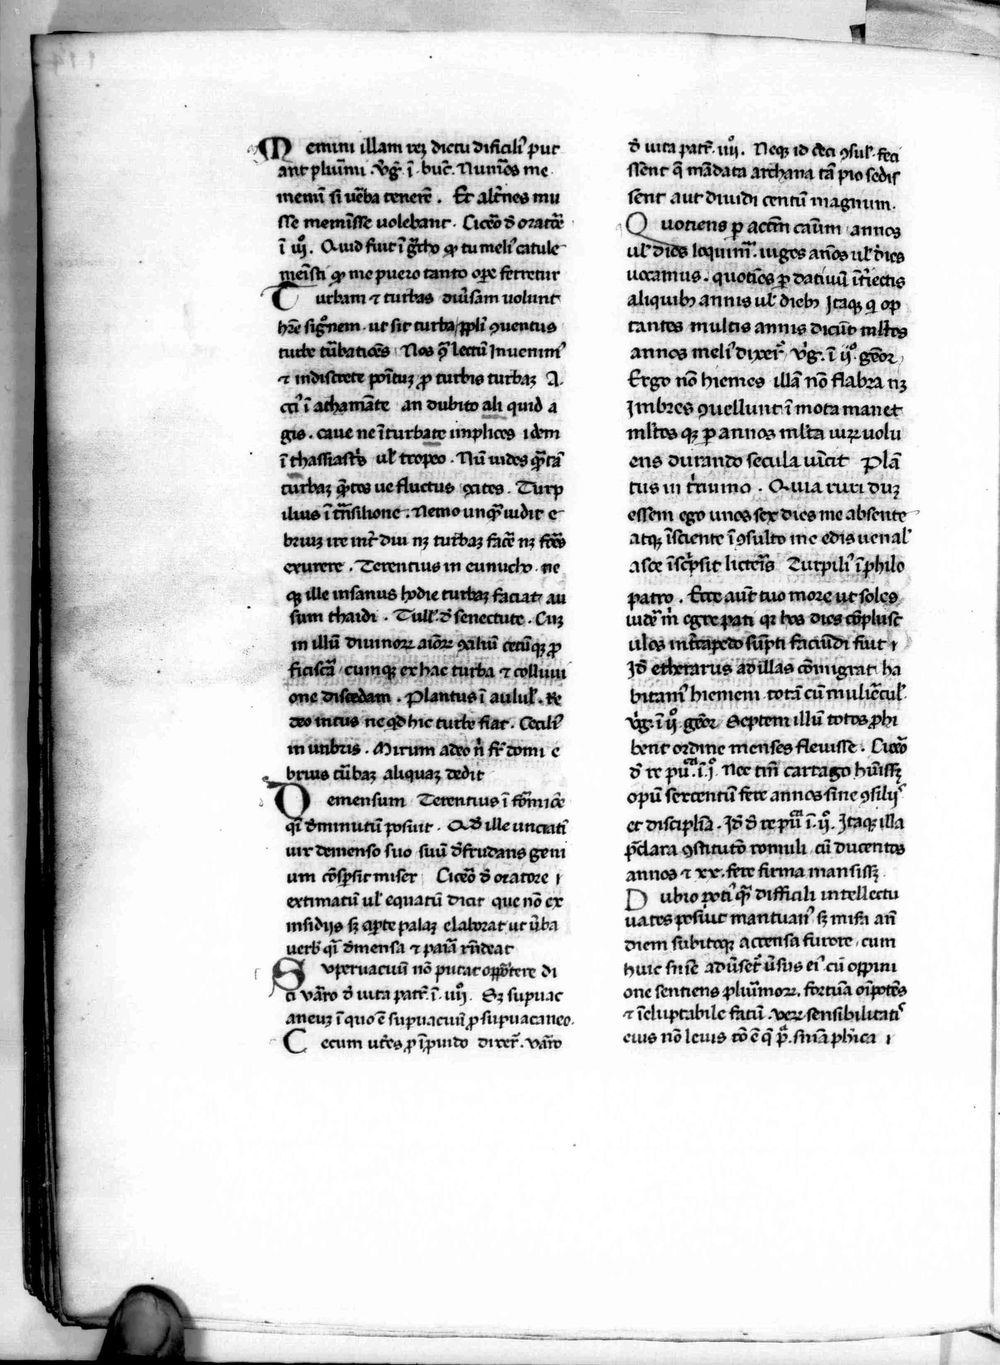 Memini illam reȝ dictu dificili put
ant plurimi . v̄g̃. ī . buc̄. Numēos me
memi si v̄ba tenerē . Et alr̄nes mu
sse memīsse uolebant . Ciceō đ oratōē
ī iijº. Quid fuit ī g̃cho q̨ tu meli catule
meīsti q̨ me puero tanto oꝑe ferretur
Turbam ⁊ turbas diūsam uolunt
hr̄e sigōnem . ut sit turba ꝓpli ꝯuentus
turbe tūbatiōes Nos q̄ lectū Inuenim̉
⁊ indiscrete poītuȝ ꝓ turbis turbaȝ A.
cci ī athamāte an dubito ali quid a
gis . caue ne īturbate implices idem
ī ul̓ tropeo . Nū uides q̄tā
turbaȝ q̄tos ue fluctus ꝯcites . Turp
ilius ī trāsilione . Nemo unq̄ uidit e
briuȝ ire int̄ diu nȝ turbaȝ facē nȝ fōēs
exurere . Terentius in eunucho . ne
qȝ ille insanus hodie turbaȝ faciat au
sum thaidi . Tull̓ đ senectute . Cuȝ
in illū diuinoꝝ aīoꝝ ꝯciliū cetūqȝ ꝓ
ficiscā cumqȝ ex hac turba ⁊ colluui
one discedam . Plantus ī aulul̓. Re
deo intus ne qđ hic turbe fiat . Cecili
in unbris . Mirum adeo n̄ fr̄ domi e
brius tūbaȝ aliquaȝ dedit
Demensum Terentius ī formiōe
qi đminutū posuit . Qđ ille unciati
uir demenso suo suū đfrudans geni
um cōꝑsit miser Ciceō đ oratore ı
extimatiū ul̓ equatū dicit que nō ex
insidijs sȝ aꝑte palaȝ elaborat ut ūba
uerb̓ qi đmensa ⁊ paīa rn̄deat
Superuacuū nō putat oꝑōtere di
ci vārō đ uita patr̄. ī . iiijº. Sȝ supuac
aneuȝ ī quo ē supuacuū ꝓ supuacaneo .
Cecum ut̄es ꝓ īꝓuido dixer̄ . vārō
đ uita patr̄. iiijº. Neqȝ id ceci ꝯsul̓. feci
ssent q̄ mādata archana tā pio sedis
sent aut diuidi centū magnum .
Quotiens ꝑ actm̄ caūm annos
ul̓ dies loquim̄ . iuges anōs ul̓ dies
uocamus . quotiēs ꝑ datiuū īt̄iectis
aliquib̉ annis ul̓ dieb̉ Itaqȝ q̄ op
tantes multis annis dicūt mltōs
annos meli dixer̄ v̄g̃. ī iijº geōr .
Ergo nō hiemes illā nō flabra nȝ
Imbres ꝯuellunt ī mota manet
mltōs qȝ ꝑ annos mlta uiꝝ uolu
ens durando secula uīcit Plā
tus in triumo . Quia ruri duȝ
essem ego unos sex dies me absente
atqȝ īsciente ī ꝯsulto me edis uenal̓
asce īscp̄sit licteīs Turpili ī philo
patro . Ecce aūt tuo more ut soles
uidē m̄ egre pati qr hos dies cōplusc
ulos int̄capedo sūpti faciūdi fuit ı
Iđ etherarus ad illas cōmigrat ha
bitam̄ hiemem totā cū muliēcul̓
v̄g̃. ī iijº. geōr Septem illū totos ꝓhi
bent ordine menses fleuisse . Ciceō
đ re pū̄. ī. iº. Nec tm̄ cartago hūissȝ
opū sexcentū fere annos sine ꝯsilijs
et disciplīa . Iđ đ re pū̄ ī . iiº. Itaqȝ illa
p̄clara ꝯstitutō romuli cū ducentos
annos ⁊ xx . fere firma mansissȝ
Dubio poti q̄ difficili intellectu
uates posiut mantuan̄ sȝ misīi an̄
diem subitoqȝ accensa furore . cum
huic sn̄ie adūset̄ ūsus ei cū oppini
one sentiens pliūmoꝝ . fortūa oīpotēs
⁊ īeluptabile fatū . verꝝ sensibilitati
eius nō leuis rō ē q̄ p̄. sn̄ia phīca ı